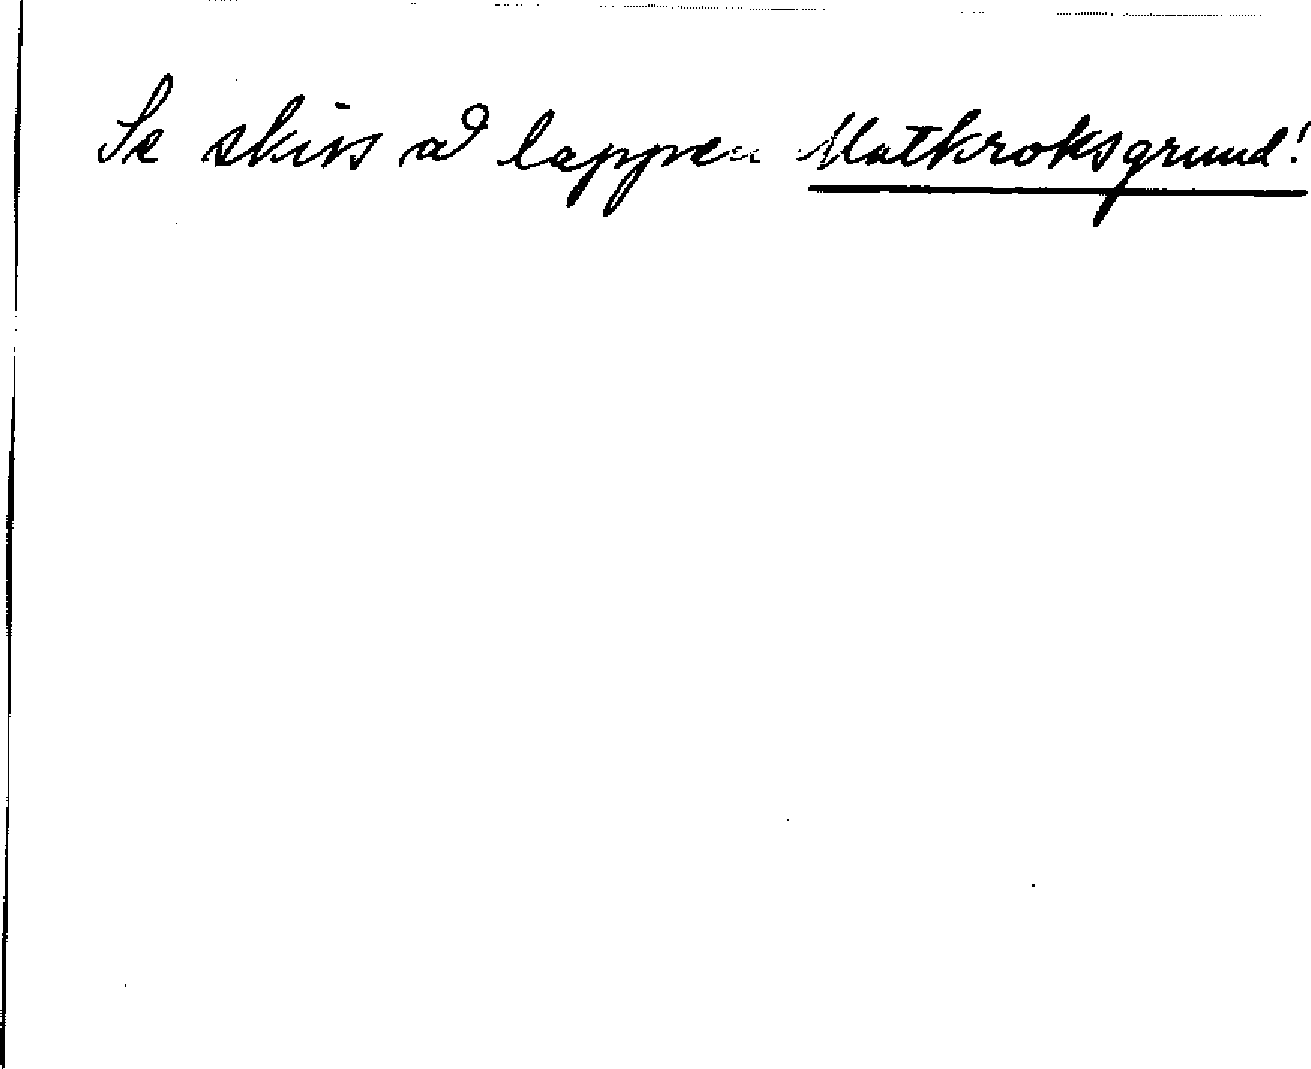 Se skiss å lappen Matkroksgrund!